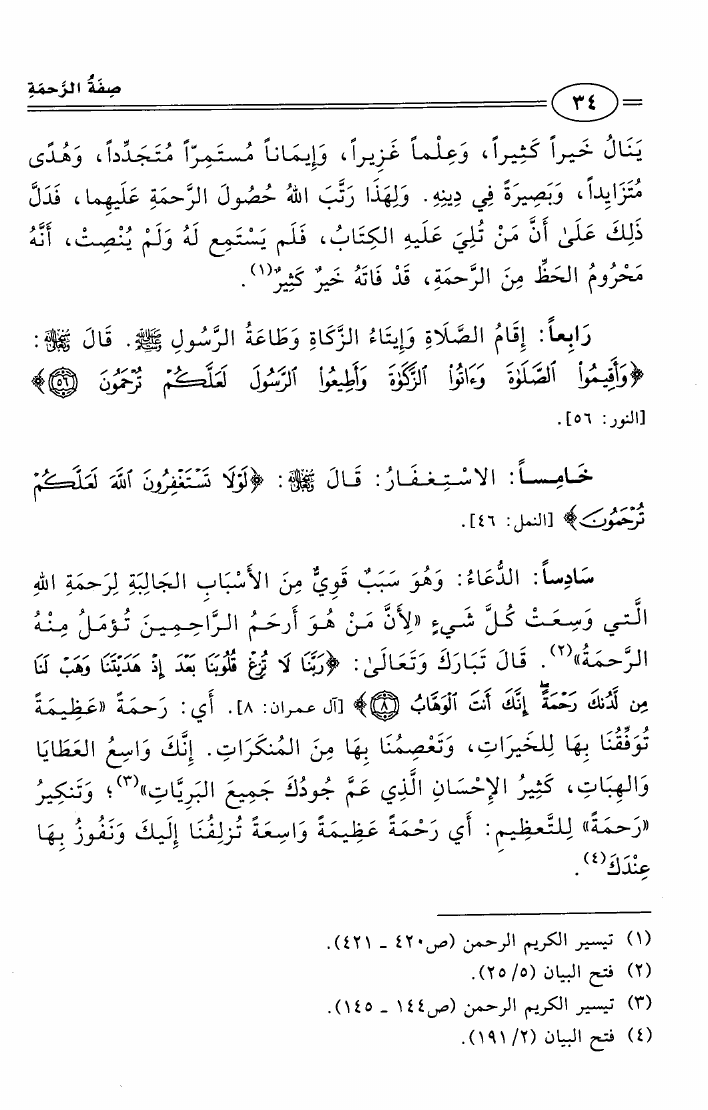 صِفَةُ الرَّحمَةِ
٣٤
يَنَالُ خَيراً كَثِيراً، وَعِلْماً غَزِيراً، وَإِيمَاناً مُستَمِرّاً مُتَجَدِّداً، وَهُدًى
مُتَزَايِداً، وَبَصِيرَةً فِي دِينِهِ. وَلِهَذَا رَتَّبَ اللهُ حُصُولَ الرَّحمَةِ عَلَيهِما، فَدَلَّ
ذَلِكَ عَلَى أَنَّ مَنْ تُلِيَ عَلَيهِ الكِتَابُ، فَلَم يَسْتَمِع لَهُ وَلَمْ يُنْصِتْ، أَنَّهُ
مَحْرُومُ الحَظِّ مِنَ الرَّحمَةِ، قَدْ فَاتَهُ خَيرٌ كَثِيرٌ(١).
رَابِعاً: إِقَامُ الصَّلَاةِ وَإِيتَاءُ الزَّكَاةِ وَطَاعَةُ الرَّسُولِ ﷺ. قَالَ ﷻ:
﴿وَأَقِيمُوا۟ ٱلصَّلَوٰةَ وَءَاتُوا۟ ٱلزَّكَوٰةَ وَأَطِيعُوا۟ ٱلرَّسُولَ لَعَلَّكُمْ تُرْحَمُونَ ٥٦﴾
[النور: ٥٦].
خَامِساً: الاسْتِغفَارُ: قَالَ ﷻ: ﴿لَوْلَا تَسْتَغْفِرُونَ ٱللَّهَ لَعَلَّكُمْ
تُرْحَمُونَ﴾ [النمل: ٤٦].
سَادِساً: الدُّعَاءُ: وَهُوَ سَبَبٌ قَوِيٌّ مِنَ الأَسْبَابِ الجَالِبَةِ لِرَحمَةِ اللهِ
الَّتي وَسِعَتْ كُلَّ شَيءٍ «لِأَنَّ مَنْ هُوَ أَرحَمُ الرَّاحِمِينَ تُؤمَلُ مِنْهُ
الرَّحمَةُ»(٢). قَالَ تَبَارَكَ وَتَعَالَى: ﴿رَبَّنَا لَا تُزِغْ قُلُوبَنَا بَعْدَ إِذْ هَدَيْتَنَا وَهَبْ لَنَا
مِن لَّدُنكَ رَحْمَةً إِنَّكَ أَنتَ ٱلْوَهَّابُ ٨﴾ [آل عمران: ٨]. أَي: رَحمَةً «عَظِيمَةً
تُوَفِّقُنَا بِهَا لِلخَيرَاتِ، وَتَعْصِمُنَا بِهَا مِنَ المُنكَرَاتِ. إِنَّكَ وَاسِعُ العَطَايَا
وَالهِبَاتِ، كَثِيرُ الإِحْسَانِ الَّذِي عَمَّ جُودُكَ جَمِيعَ البَرِيَّاتِ»(٣)؛ وَتَنكِيرُ
«رَحمَةً» لِلتَّعظِيمِ: أَي رَحْمَةً عَظِيمَةً وَاسِعَةً تُزلِفُنَا إِلَيكَ وَنَفُوزُ بِهَا
عِنْدَكَ(٤).
(١) تيسير الكريم الرحمن (ص٤٢٠ ـ ٤٢١).
(٢) فتح البيان (٢٥/٥).
(٣) تيسير الكريم الرحمن (ص١٤٤ ـ ١٤٥).
(٤) فتح البيان (١٩١/٢).